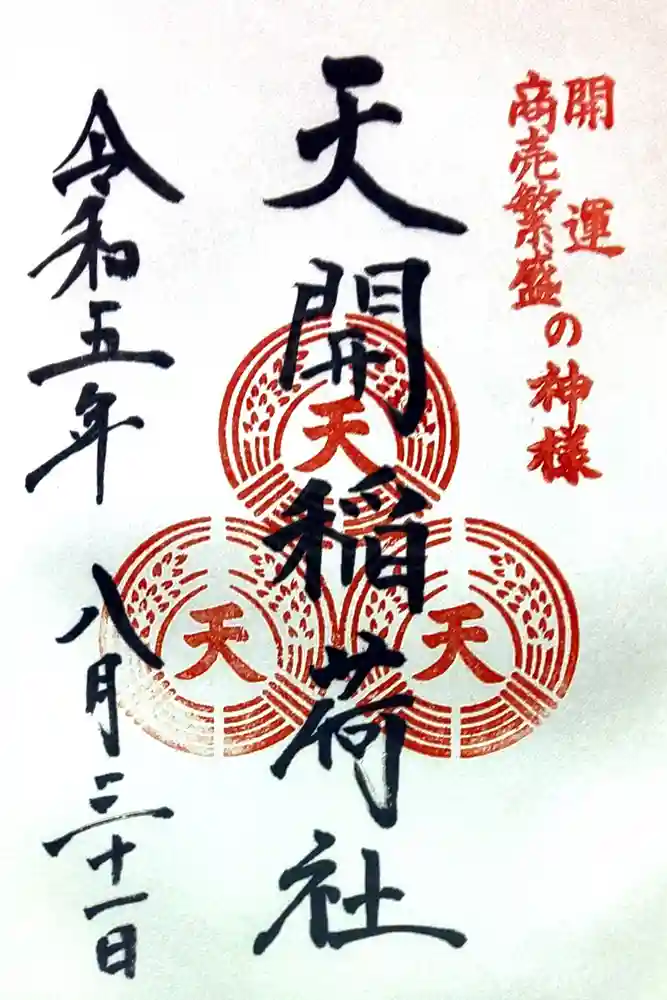 開運
商売繁盛
の神様
天開稲荷社
天
天
天
令和五年 八月三十一日